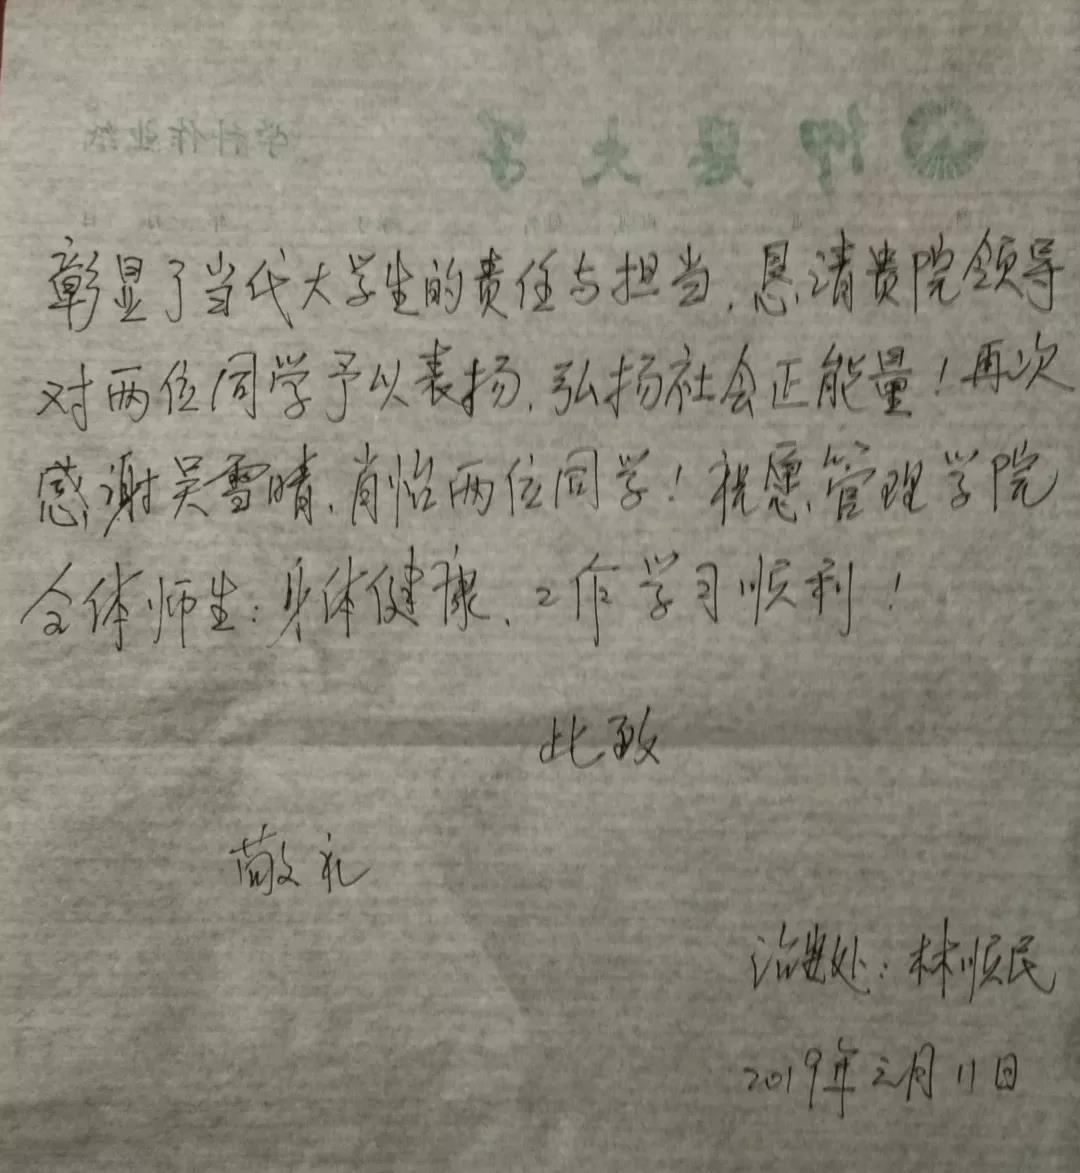 学科作业纸
彰显了当代大学生的责任与担当，恳请贵院领导
对两位同学予以表扬，弘扬社会正能量！再次
感谢吴雪晴，肖怡两位同学！祝愿管理学院
全体师生：身体健康、工作学习顺利！
此致
敬礼
处：林顺民
2019年元月11日